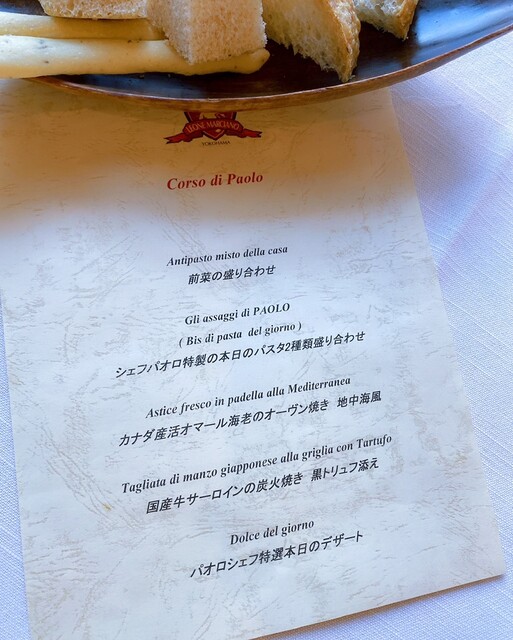 LEONE MARCIANO
YOKOHAMA
Corso di Paolo
Antipasto misto della casa
前菜の盛り合わせ
Gli assaggi di PAOLO
( Bis di pasta del giorno )
シェフパオロ特製の本日のパスタ2種類盛り合わせ
Astice fresco in padella alla Mediterranea
カナダ産活オマール海老のオーヴン焼き 地中海風
Tagliata di manzo giapponese alla griglia con Tartufo
国産牛サーロインの炭火焼き 黒トリュフ添え
Dolce del giorno
パオロシェフ特選本日のデザート